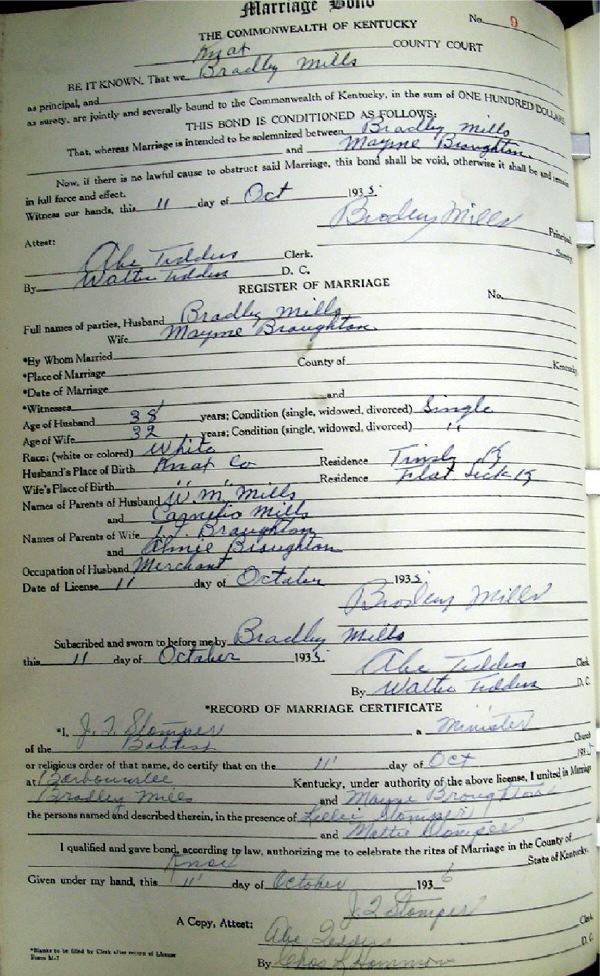 Marriage Bond
No. 9
THE COMMONWEALTH OF KENTUCKY
Knox COUNTY COURT
BE IT KNOWN, That we Bradley Mills
as principal, and
as surety, are jointly and severally bound to the Commonwealth of Kentucky, in the sum of ONE HUNDRED DOLLARS
THIS BOND IS CONDITIONED AS FOLLOWS:
That, whereas Marriage is intended to be solemnized between Bradley Mills
and Mayme Broughton
Now, if there is no lawful cause to obstruct said Marriage, this bond shall be void, otherwise it shall be and remain
in full force and effect.
Witness our hands, this 11 day of Oct 1935
Bradley Mills Principal
Surety
Attest:
Abe Tedders Clerk.
By Walter Tedders D. C.
REGISTER OF MARRIAGE
No.
Full names of parties, Husband Bradley Mills
Wife Mayme Broughton
*By Whom Married
*Place of Marriage County of Kentucky
*Date of Marriage
*Witnesses and
Age of Husband 38 years; Condition (single, widowed, divorced) Single
Age of Wife 32 years; Condition (single, widowed, divorced) "
Race: (white or colored) White
Husband's Place of Birth Knox Co Residence Ky
Wife's Place of Birth " " Residence Flat Lick Ky
Names of Parents of Husband W. M. Mills
and Mills
Names of Parents of Wife Broughton
and Broughton
Occupation of Husband Merchant
Date of License 11 day of October 1935
Bradley Mills
Subscribed and sworn to before me by Bradley Mills
this 11 day of October 1935
Abe Tedders Clerk
By Walter Tedders D. C.
*RECORD OF MARRIAGE CERTIFICATE
*I, J. T. Stamper a Minister
of the Baptist Church
or religious order of that name, do certify that on the 11 day of Oct 1935
at Barbourville Kentucky, under authority of the above license, I united in Marriage
Bradley Mills and Mayme Broughton
the persons named and described therein, in the presence of Stamper
and Mattie Stamper
I qualified and gave bond, according to law, authorizing me to celebrate the rites of Marriage in the County of
Knox State of Kentucky.
Given under my hand, this 11 day of October 1936
J. T. Stamper
A Copy, Attest: Abe Tedders Clerk
By Chas R Hammons D. C.
*Blanks to be filled by Clerk after return of License
Form M-7